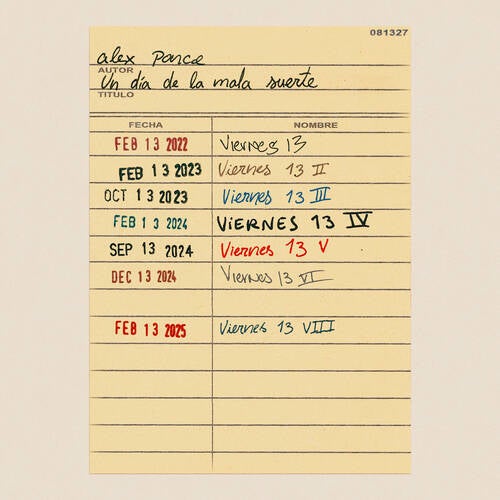 081327
alex ponce
AUTOR
Un día de la mala suerte
TITULO
FECHA NOMBRE
FEB 13 2022 Viernes 13
FEB 13 2023 Viernes 13 II
OCT 13 2023 Viernes 13 III
FEB 13 2024 VIERNES 13 IV
SEP 13 2024 Viernes 13 V
DEC 13 2024 Viernes 13 VI
FEB 13 2025 Viernes 13 VIII